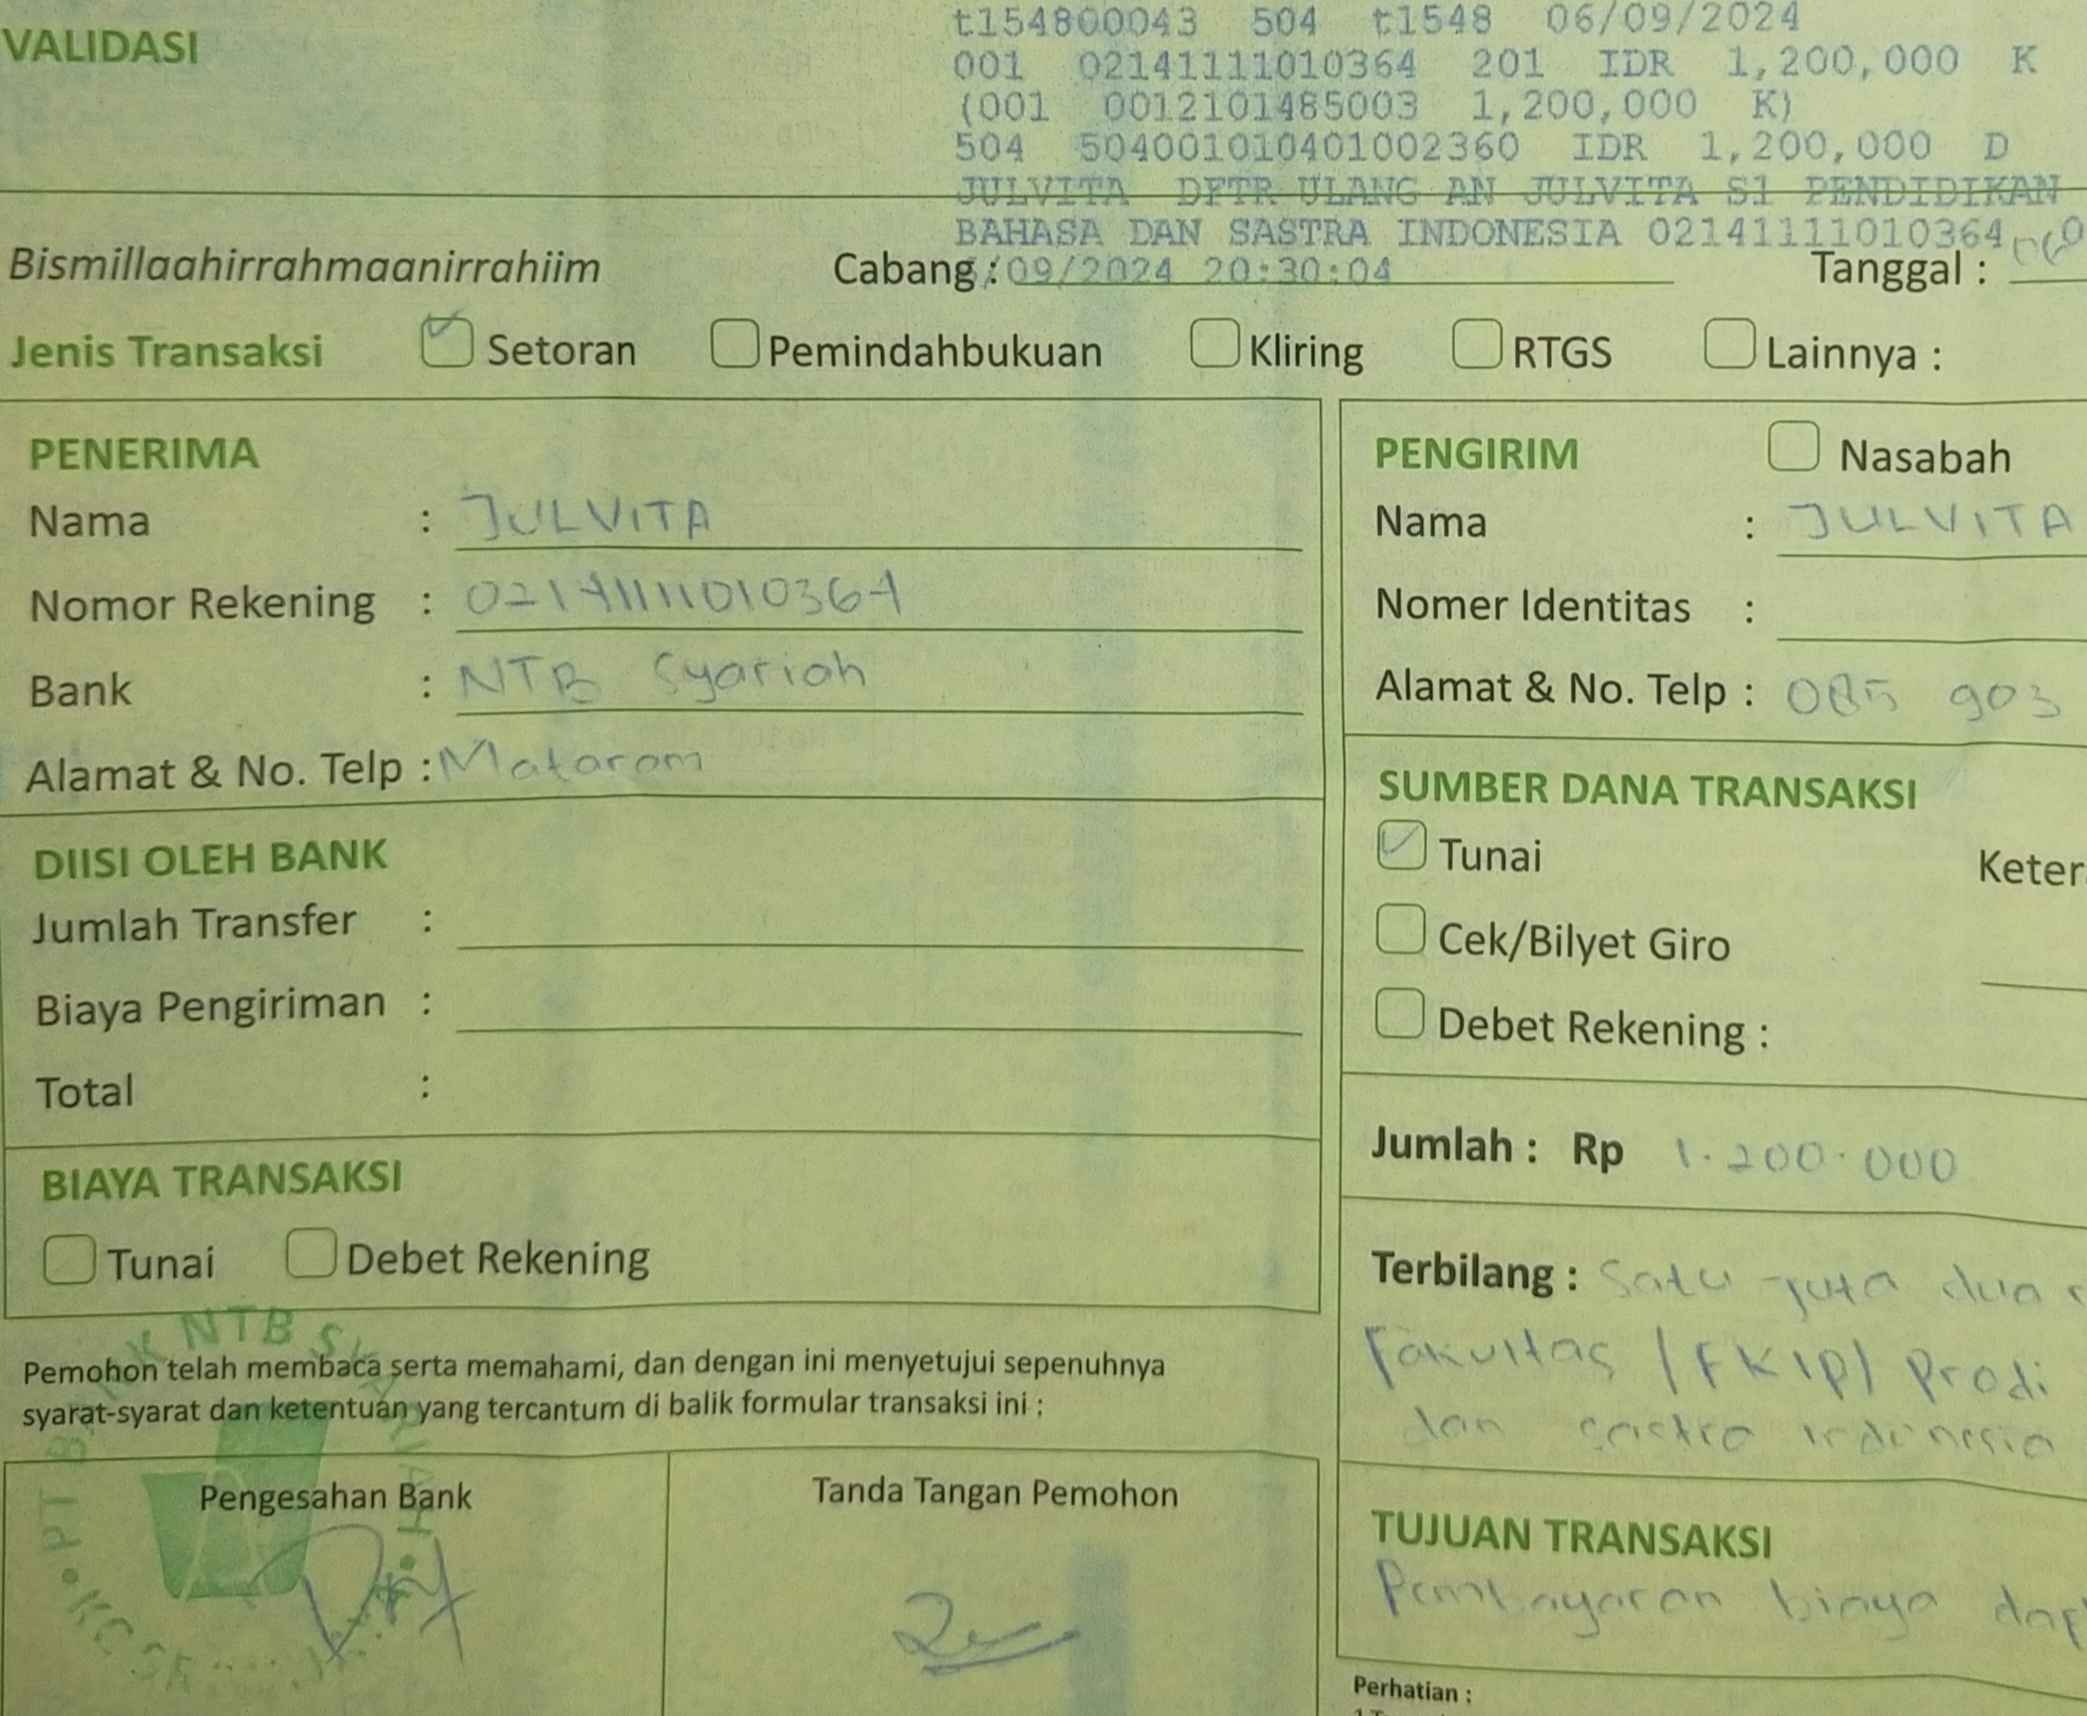 VALIDASI
t154800043 504 t1548 06/09/2024
001 02141111010364 201 IDR 1,200,000 K
(001 0012101485003 1,200,000 K)
504 504001010401002360 IDR 1,200,000 D
JULVITA DFTR ULANG AN JULVITA S1 PENDIDIKAN
BAHASA DAN SASTRA INDONESIA 02141111010364
/09/2024 20:30:04
Bismillaahirrahmaanirrahiim Cabang : Tanggal :
Jenis Transaksi Setoran Pemindahbukuan Kliring RTGS Lainnya :
PENERIMA
Nama : JULVITA
Nomor Rekening : 02141111010364
Bank : NTB Syariah
Alamat & No. Telp : Mataram
DIISI OLEH BANK
Jumlah Transfer :
Biaya Pengiriman :
Total :
BIAYA TRANSAKSI
Tunai Debet Rekening
Pemohon telah membaca serta memahami, dan dengan ini menyetujui sepenuhnya
syarat-syarat dan ketentuan yang tercantum di balik formular transaksi ini :
Pengesahan Bank
Tanda Tangan Pemohon
PT BANK NTB SYARIAH
PENGIRIM Nasabah
Nama : JULVITA
Nomer Identitas :
Alamat & No. Telp : 085 903
SUMBER DANA TRANSAKSI
Tunai
Cek/Bilyet Giro
Debet Rekening :
Jumlah : Rp 1.200.000
Terbilang : Satu juta dua
Fakultas / FKIP / Prodi
dan sastra indonesia
TUJUAN TRANSAKSI
Pembayaran biaya
Perhatian :